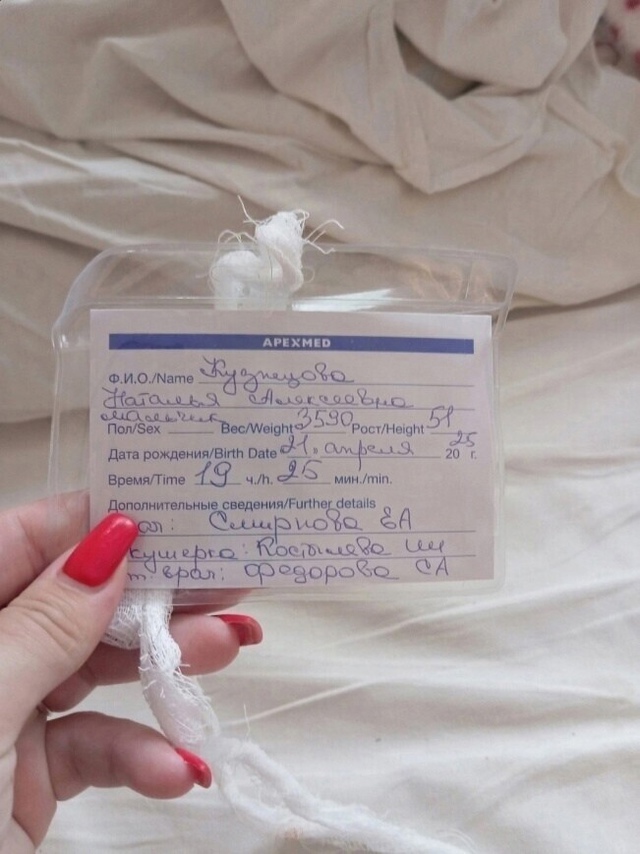 APEXMED
Ф.И.О./Name Кузнецова
Наталья Алексеевна
мальчик
Пол/Sex Вес/Weight 3590 Рост/Height 51
Дата рождения/Birth Date 21. апреля 2025 г.
Время/Time 19 ч./h. 25 мин./min.
Дополнительные сведения/Further details
Смирнова ЕА
Костылева
врач: Федорова СА